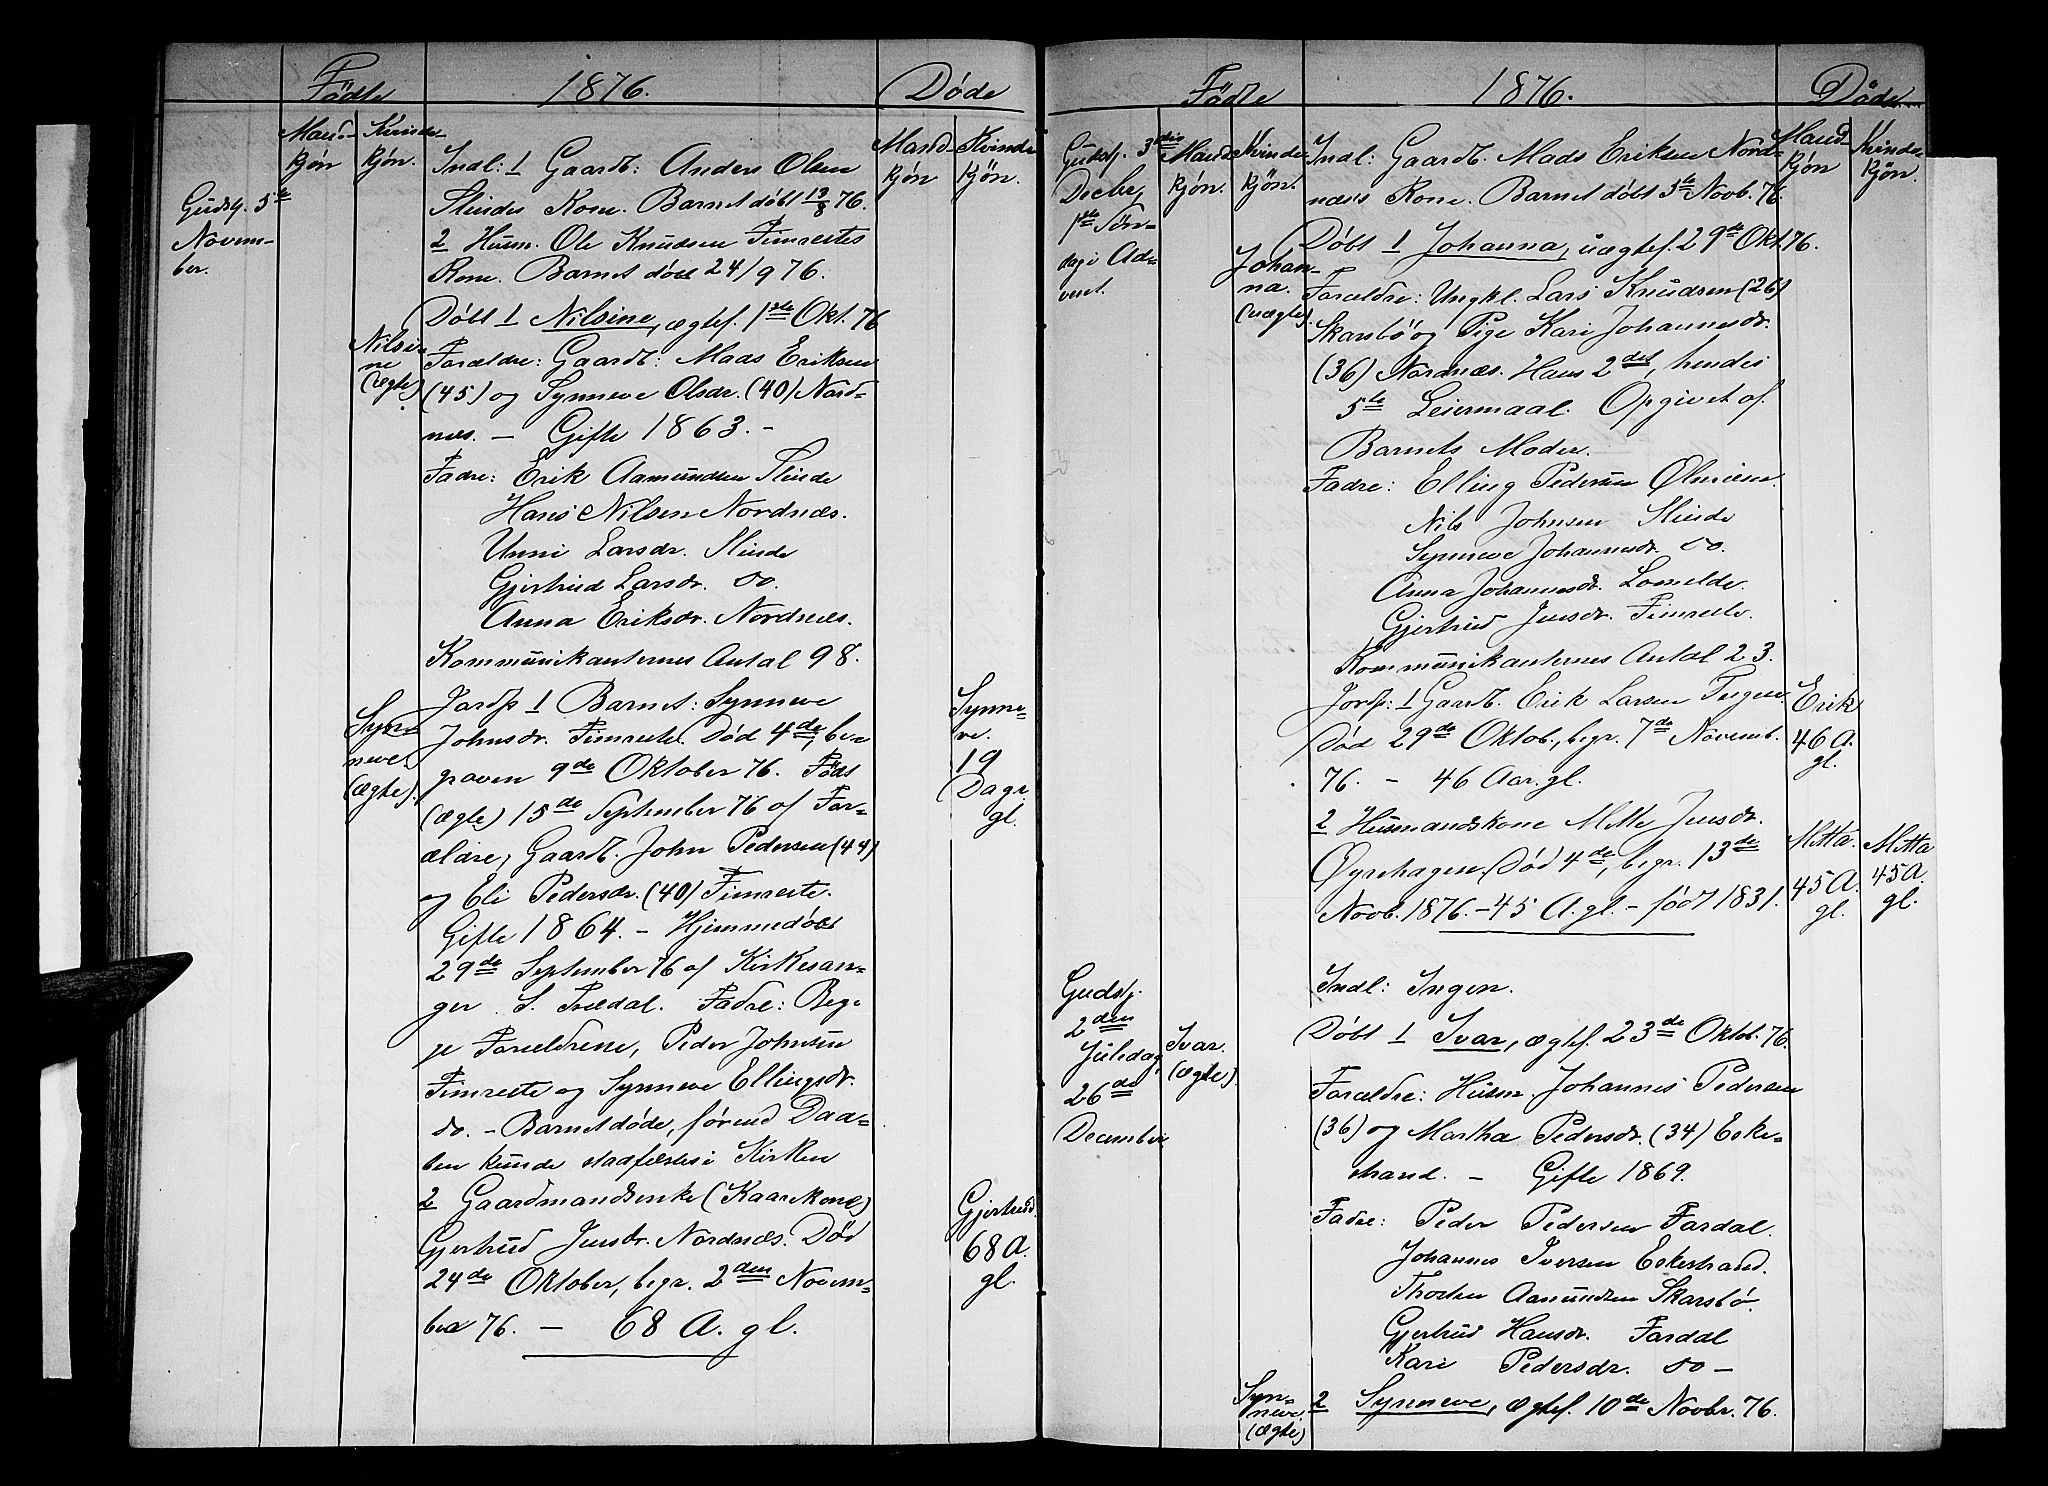 Födte
1876.
Døde
Mand-
kjøn
Kvinde-
kjøn.
Mand-
kjøn
Kvinde
kjön.
Gudstj. 5te
Novem-
ber.
Indl: 1 Gaardb: Anders Olsen
Slindes Kone. Barnet døbt 19/8 76.
2 Husm. Ole Knudsen Fimreites
Kone. Barnet døbt 24/9 76.
Døbt 1 Nilsine, ægtef. 1ste Okt. 76
Nilsi-
ne
(ægte)
Forældre: Gaardb: Mads Eriksen
(45) og Synneve Olsdr. (40) Nord-
næs. — Gifte 1863. -
Fadre: Erik Aamundsen Slinde
Hans Nilsen Nordnæs.
Unni Larsdr. Slinde
Gjertrud Larsdr. do.
Anna Eriksdr. Nordnæs.
Kommunikanternes Antal 98.
Syn-
neve.
(ægte)
Jordf. 1 Barnet: Synneve
Johnsdr. Fimreite. Død 4de, be-
graven 9de Oktober 76. Født
(ægte) 15de September 76 af For-
ældre, Gaardb. John Pedersen (44)
og Eli Pedersdr. (40) Fimreite.
Gifte 1864. - Hjemmedøbt
29de September 76 af Kirkesan-
ger S. Frædal. Fadre: Beg-
ge Forældrene, Peder Johnsen
Fimreite og Synneve Ellingsdr.
do. - Barnet døde, førend Daa-
ben kunde stadfæstes i Kirken
Synne-
ve.
19
Dage
gl.
2 Gaardmandsenke (Kaarkone)
Gjertrud Jensdr. Nordnæs. Død
24de Oktober, begr. 2den Novem-
ber 76. — 68 A. gl.
Gjertrud
68 A.
gl.
Födte
1876.
Døde
Mand
kjön.
Kvinde-
kjön.
Mand-
kjön
Kvinde
kjön.
Gudstj. 3die
Decbr,
1ste Sön-
dag i Ad-
vent.
Indl: Gaardb. Mads Eriksen Nord-
næs's Kone. Barnet døbt 5te Novb. 76.
Døbt 1 Johanna, uægtef. 29de Okt. 76.
Johan-
na.
(uægte).
Forældre: Ungkl. Lars Knudsen (26)
Skarsbö og Pige Kari Johannesdr.
(36) Nordnæs. Hans 2det, hendes
5te Leiermaal. Opgivet af
Barnets Moder.
Fadre: Elling Pedersen Ølmeim.
Nils Johnsen Slinde
Synneve Johannesdr. do.
Anna Johannesdr. Lomelde.
Gjertrud Jensdr. Fimreite.
Kommunikanternes Antal 23.
Jordf: 1 Gaardb. Erik Larsen
Død 29de Oktob., begr. 7de Novemb.
76. - 46 Aar gl.
Erik
46 A.
gl.
2 Husmandskone Mette Jensdr.
Øyrehagen. Død 4de, begr. 13de
Novb. 1876. - 45 A. gl. - født 1831.
Mitta.
45 A.
gl.
Mitta
45 A.
gl.
Gudstj.
2den
Juledag,
26de
December
Indl: Ingen.
Døbt 1 Ivar, ægtef. 23de Oktob. 76.
Ivar.
(ægte).
Forældre: Husm. Johannes Pedersen
(36) og Martha Pedersdr. (34) Eske-
strand. - Gifte 1869.
Fadre: Peder Pedersen Fardal.
Johannes Iversen Eskestrand.
Thosten Aamundsen Skarsbö.
Gjertrud Hansdr. Fardal
Kari Pedersdr. do -
Syn-
neve.
(ægte)
2 Synneve, ægtef. 10de Novbr. 76.